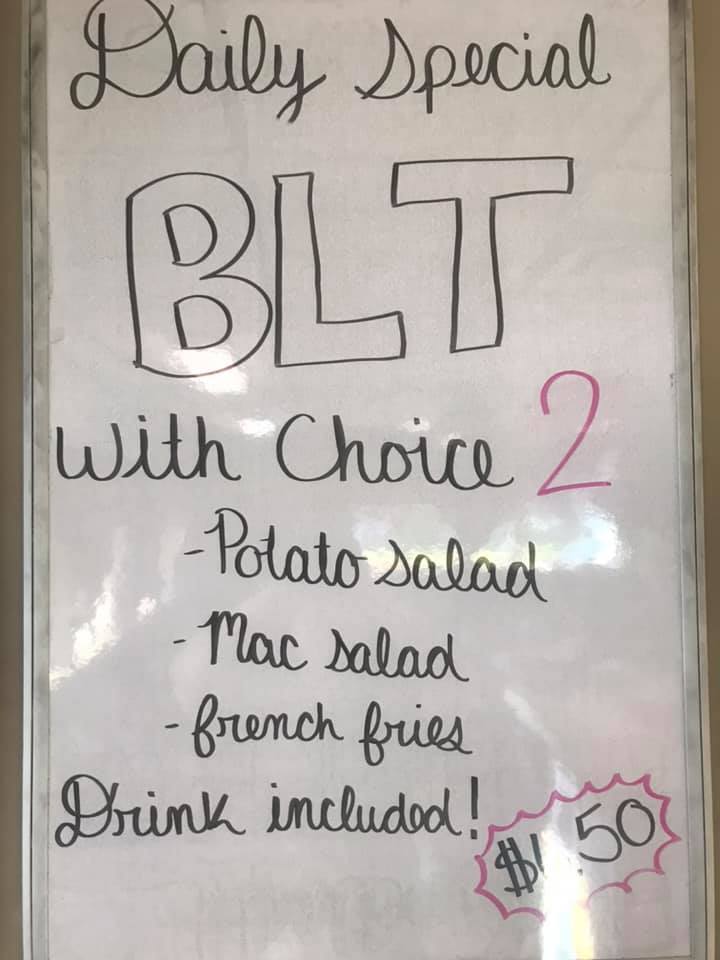 Daily Special
BLT
With Choice 2
- Potato salad
- Mac salad
- french fries
Drink included!